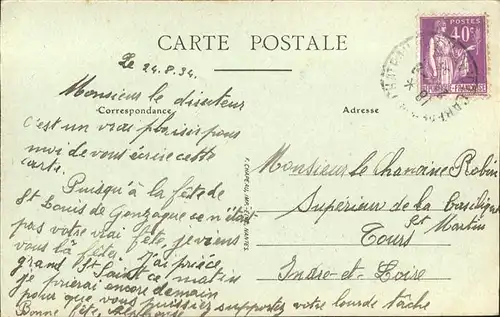 CARTE POSTALE
Le 24.8.34.
Monsieur le directeur
Correspondance
Adresse
C'est un vrai plaisir pour
moi de vous écrire cette
carte.
Puisqu'à la fête de
St Louis de Gonzague ce n'était
pas votre vrai fête, je viens
vous la fêter. J'ai prié ce
grand St Saint ce matin
je prierai encore demain
pour que vous puissiez supporter votre lourde tâche
Bonne fête.
Monsieur le Chanoine Robin
Supérieur de la Basilique
St Martin
Tours
Indre-et-Loire
POSTES
40c
NANTES